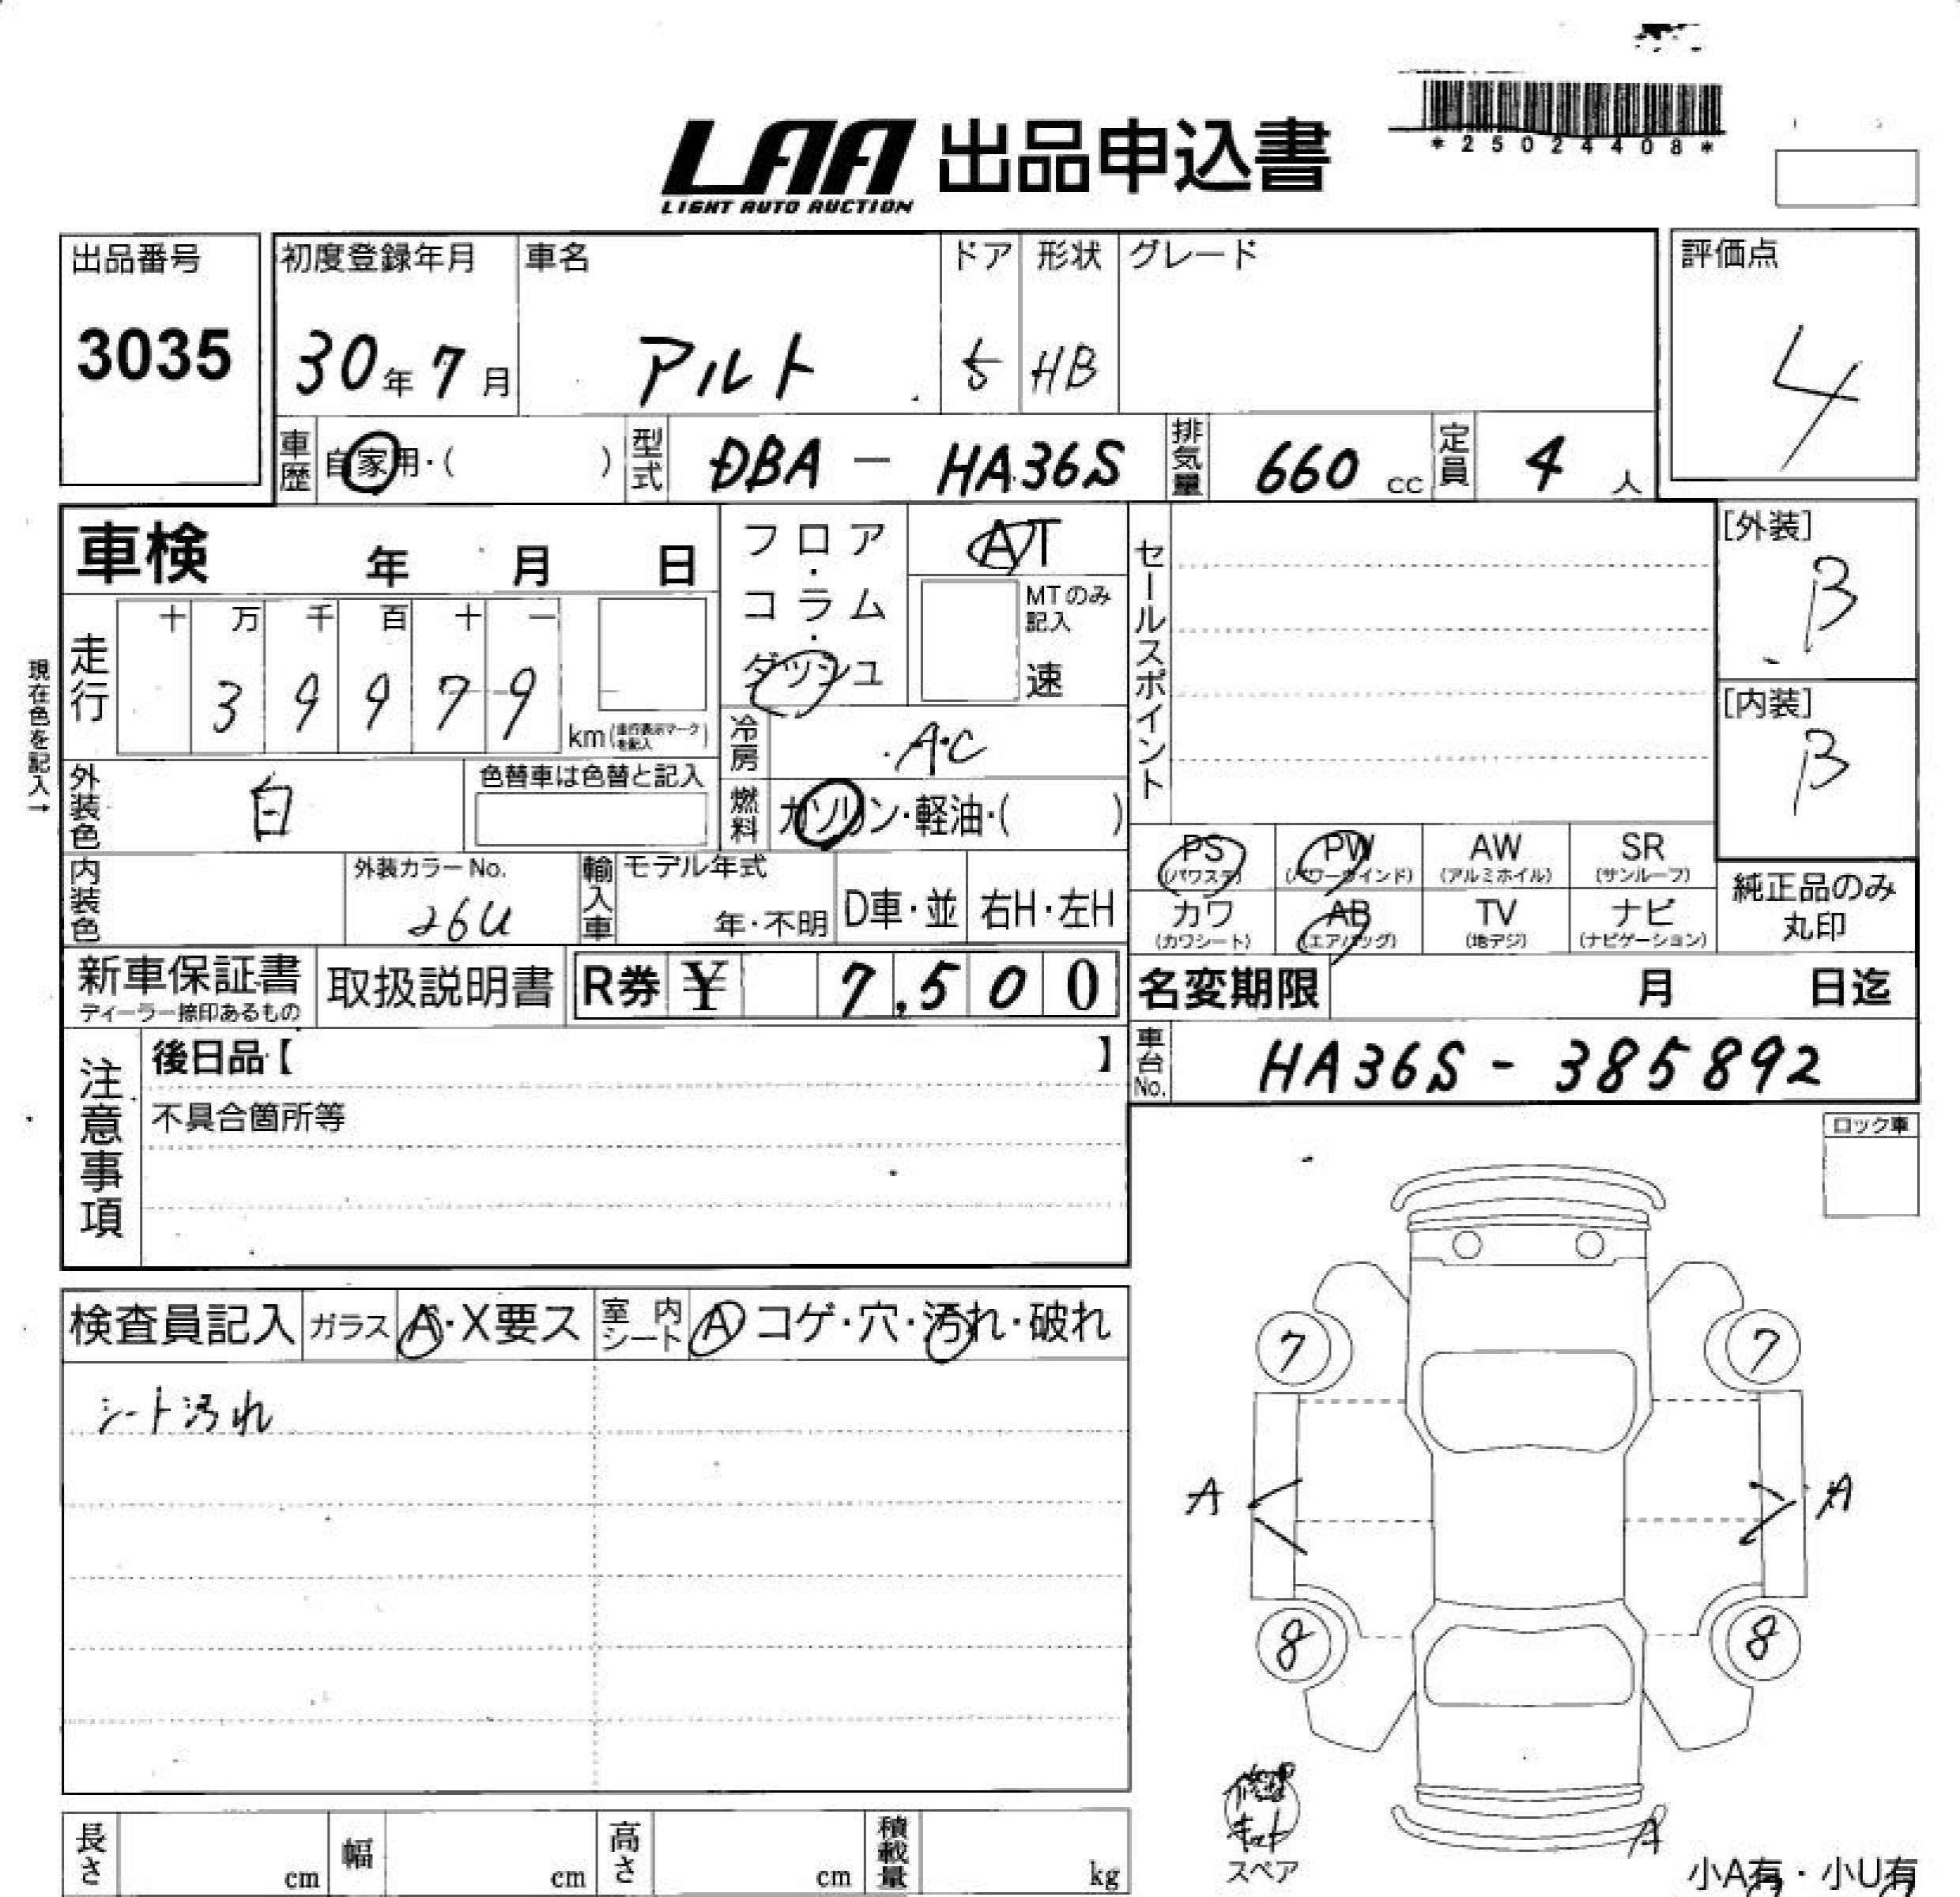 *25024408*
LAA 出品申込書
LIGHT AUTO AUCTION
出品番号 初度登録年月 車名 ドア 形状 グレード 評価点
3035 30年7月 アルト 5 HB 4
車歴 自家用・( ) 型式 DBA - HA36S 排気量 660 cc 定員 4 人
車検 年 月 日 フロア・コラム・ダッシュ AT セールスポイント [外装]
B
MTのみ記入
速
現在色を記入→
走行 十 万 千 百 十 一
3 9 9 7 9
km(走行表示マークを記入)
[内装]
B
冷房 A・C
外装色 白 色替車は色替と記入 燃料 ガソリン・軽油・( )
PS (パワステ) PW (パワーウインド) AW (アルミホイル) SR (サンルーフ)
内装色 外装カラーNo. 26U 輸入車 モデル年式 年・不明 D車・並 右H・左H
カワ (カワシート) AB (エアバッグ) TV (地デジ) ナビ (ナビゲーション)
純正品のみ
丸印
新車保証書 取扱説明書 R券 ¥ 7,500 名変期限 月 日迄
ディーラー捺印あるもの
後日品【 】 車台No. HA36S - 385892
注意事項 不具合箇所等
ロック車
検査員記入 ガラス A・X要ス 室内シート A コゲ・穴・汚れ・破れ
7 7
シート汚れ
A A
8 8
修理
キット
スペア
A
長さ cm 幅 cm 高さ cm 積載量 kg
小A有・小U有